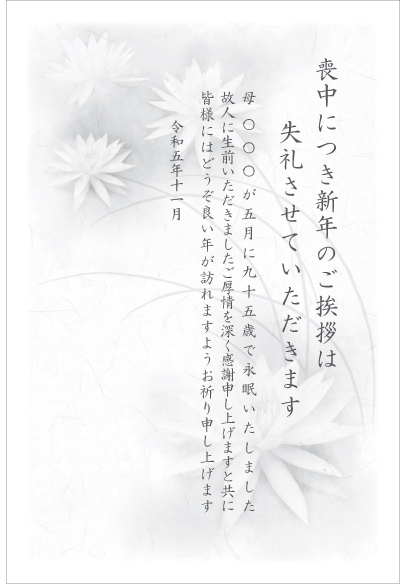 喪中につき新年のご挨拶は
失礼させていただきます
母〇〇〇が五月に九十五歳で永眠いたしました
故人に生前いただきましたご厚情を深く感謝申し上げますと共に
皆様にはどうぞ良い年が訪れますようお祈り申し上げます
令和五年十一月